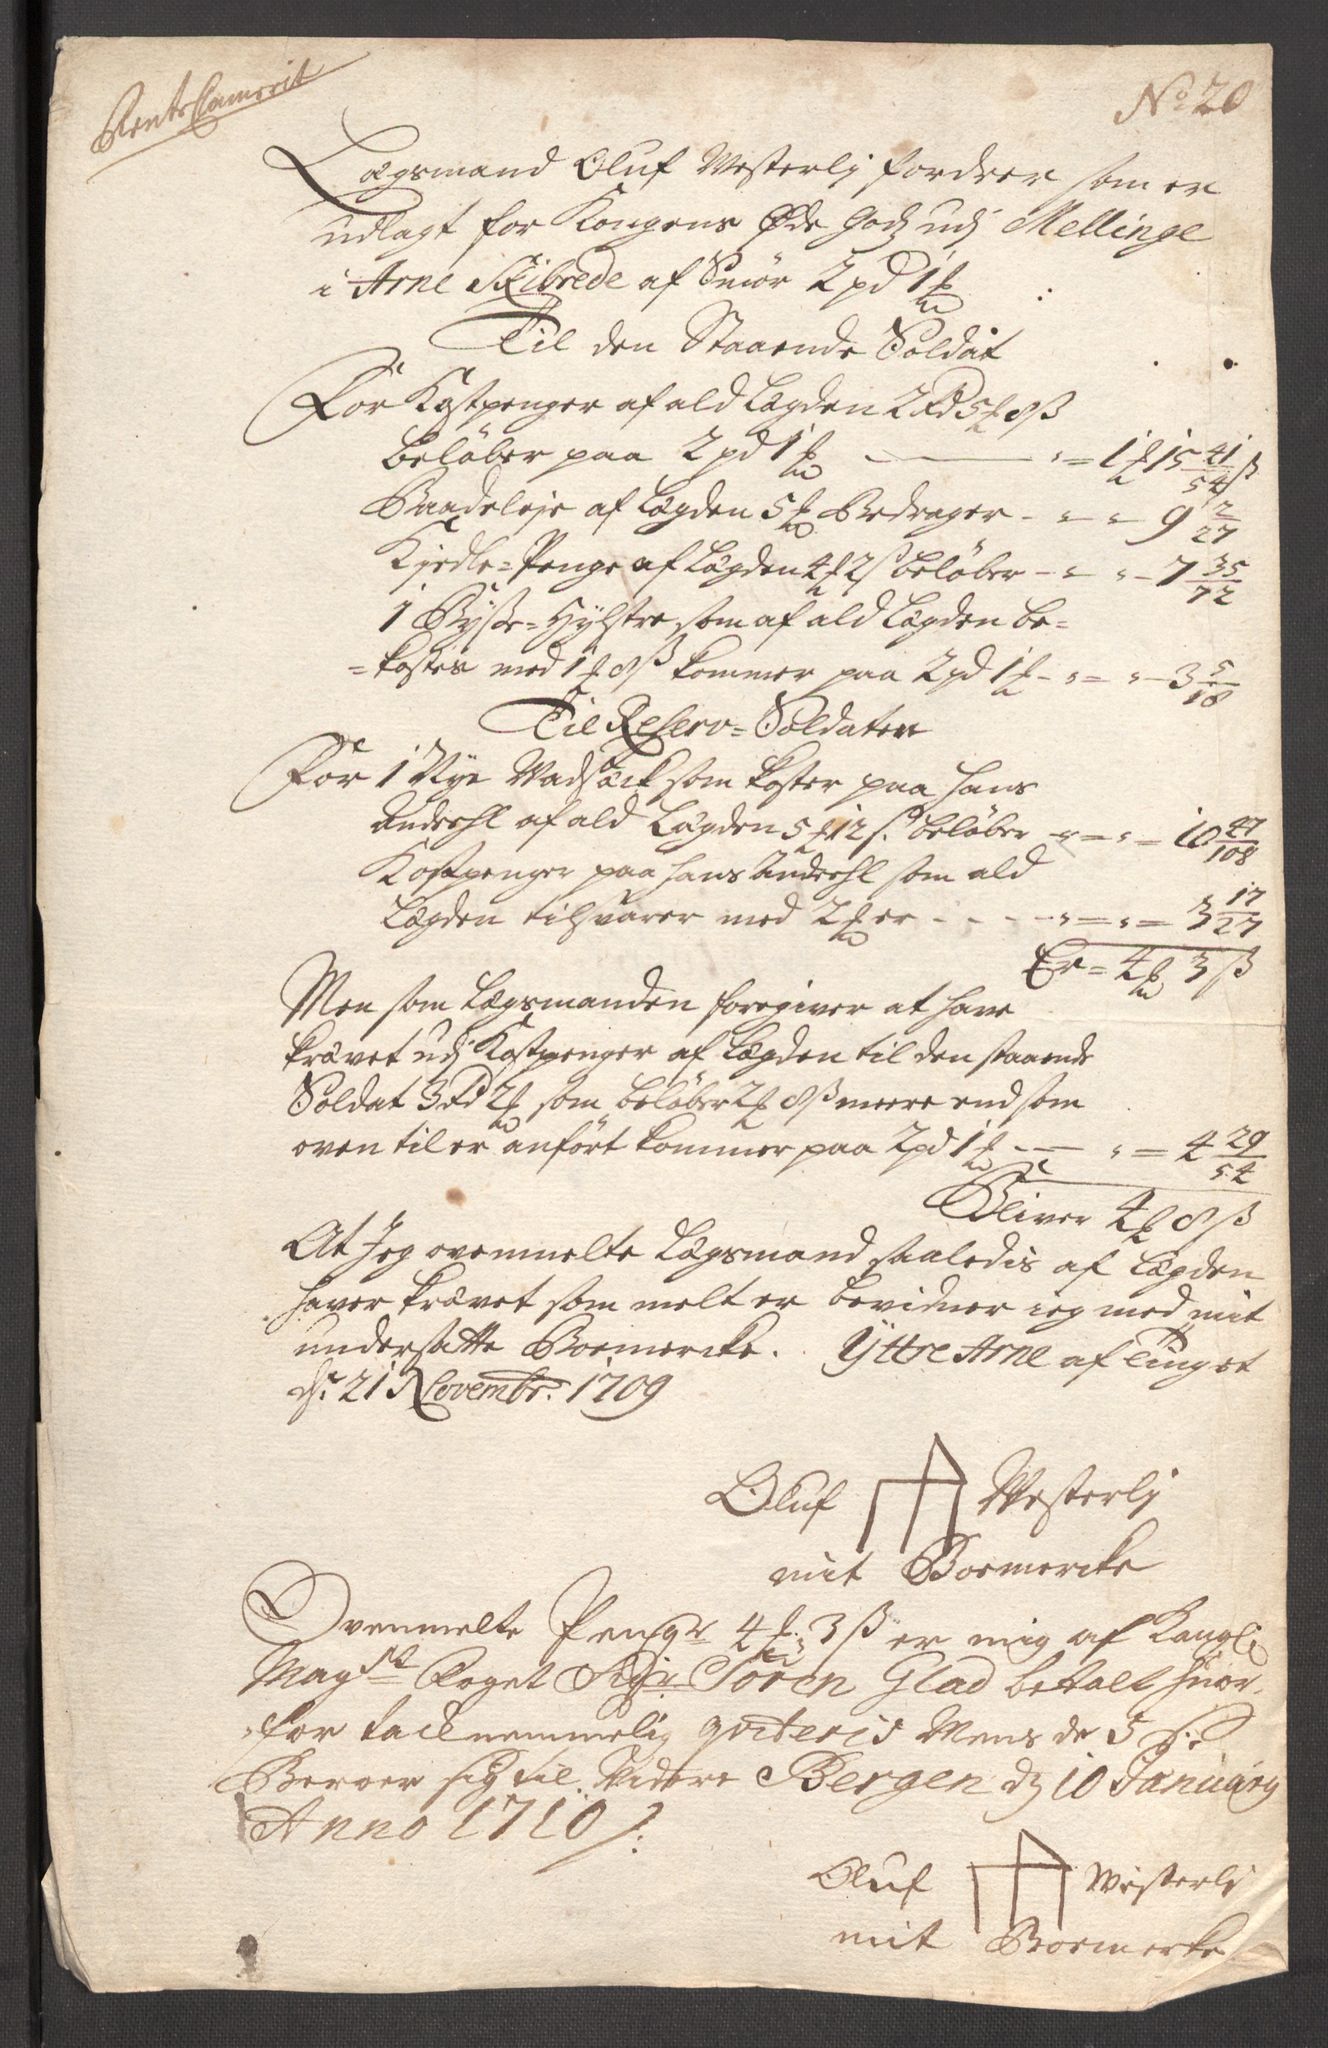 RenteCammerit
No 20
Lægsmand Oluf Westerlj fordrer som er
udlagt for Kongens Øde Godz udj Mellinge
i Arne Skibrede af Smør 2 pd 1 ℔
Til den Staaende Soldat
For Kostpenger af ald Lægden 2 Rd 5 ℔ 8 ß
beløber paa 2 pd 1 ℔ — " = 1 ℔ 15 41/54 ß
Baadeleje af Lægden 5 ℔ Bedrager - " - " - 9 2/27
Kjedle-Penge af Lægden 4 ℔ 2 ß beløber - " - " - 7 35/72
1 Bysse-Hylstre som af ald Lægden be-
-kostes med 1 ℔ 8 ß kommer paa 2 pd 1 ℔ - " - " - 3 5/18
Til Reserv-Soldaten
For 1 Nye Madsæck som koster paa hans
andeehl af ald Lægden 5 ℔ 12 ß. beløber - " = " = 10 47/108
Kostpenger paa hans Andeehl som ald
Lægden tilsvarer med 2 ℔ er - - - " = " = 3 17/27
Er = 4 ℔ 3 ß
Men som Lægsmanden foregiver at have
krævet udj Kostpenger af Lægden til den staaende
Soldat 3 Rd 2 ℔ som beløber 2 ℔ 8 ß meere end som
oven til er anført kommer paa 2 pd 1 ℔ - — " = 4 29/54
Bliver 4 ℔ 8 ß
At Jeg ovenmelte Lægsmand saaledis af Lægden
haver krævet som melt er bevidner ieg med mit
undersatte Boemercke. Yttre Arne af Tinget
dr. 21 Novembr. 1709
Oluf Westerlj
mit Boemercke
Ovenmelte Pengr 4 ℔ 3 ß er mig af Kongl:
Mayst Foget Sigr Søren Glad betalt huor-
-for tacknemmelig qviteris Mens de 5 ß.
Beroer sig til Videre Bergen dz 10 January
Anno 1710 /:
Oluf Westerlj
mit Boemerke